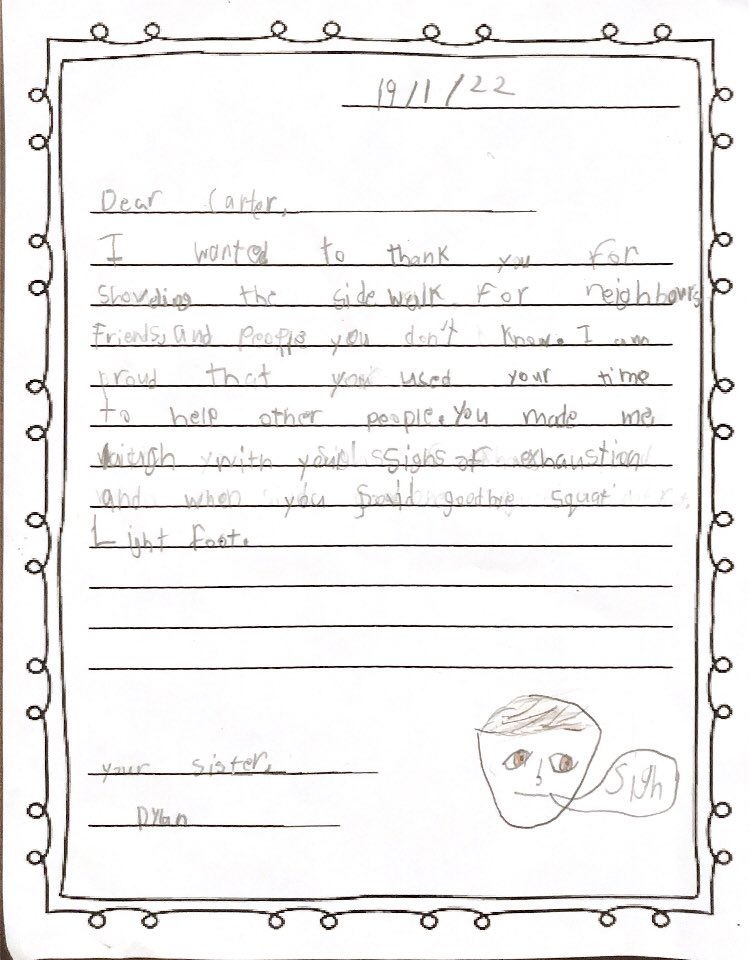 19/1/22
Dear Carter,
I wanted to thank you for
shoveling the sidewalk for neighbours,
Friends, and people you don't know. I am
proud that you used your time
to help other people. You made me
with your signs of exhaustion
and when you said goodbye squat
Light foot.
your sister,
Dylan
Sigh